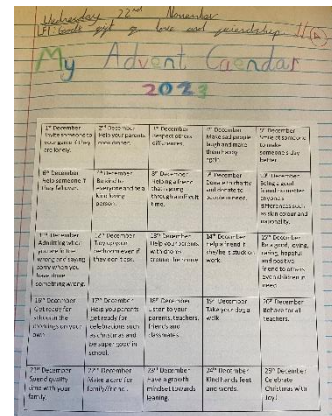 Wednesday 22nd November
LFI: Gods gift of love and friendship
My Advent Caendar
2023
1st December
Invite someone to
your game if they
are lonely.
2nd December
Help your parents
December
Respect others
differences.
December
Make sad people
laugh and make
them happy
again.
5th December
Smile at someone
to make
someone's day
better.
6th December
Help someone if
they fall over.
December
Be kind to
everyone and be a
loving
person.
8th December
Helping a friend
that is going
through a difficult
time.
December
Donate to charity
and donate to
people in need.
December
Being a good
friend no matter
anyone's
differences such
as skin colour and
personality.
December
Admitting when
you are in the
wrong and saying
sorry when you
have done
something wrong.
12th December
Tidy up your
bedroom even if
they don't ask.
13th December
Help your parents
with chores
around the home.
14th December
Help a friend if
she/he is stuck on
work.
15th December
Be a good, loving,
caring, helpful
and positive
friend to others
even children in
need.
16th December
Get ready for
school in the
mornings on your
own.
17th December
Help your parents
get ready for
celebrations such
as christmas and
be super good in
school.
18th December
Listen to your
parents, teachers,
friends and
classmates.
19th December
Take your dog a
walk.
20th December
Behave for all
teachers.
21st December
Spend quality
time with your
family.
22nd December
Make a card for
family/friend.
23rd December
Have a growth
mindset towards
learning.
24th December
Kind hands, feet
and words.
25th December
Celebrate
Christmas with
Joy!